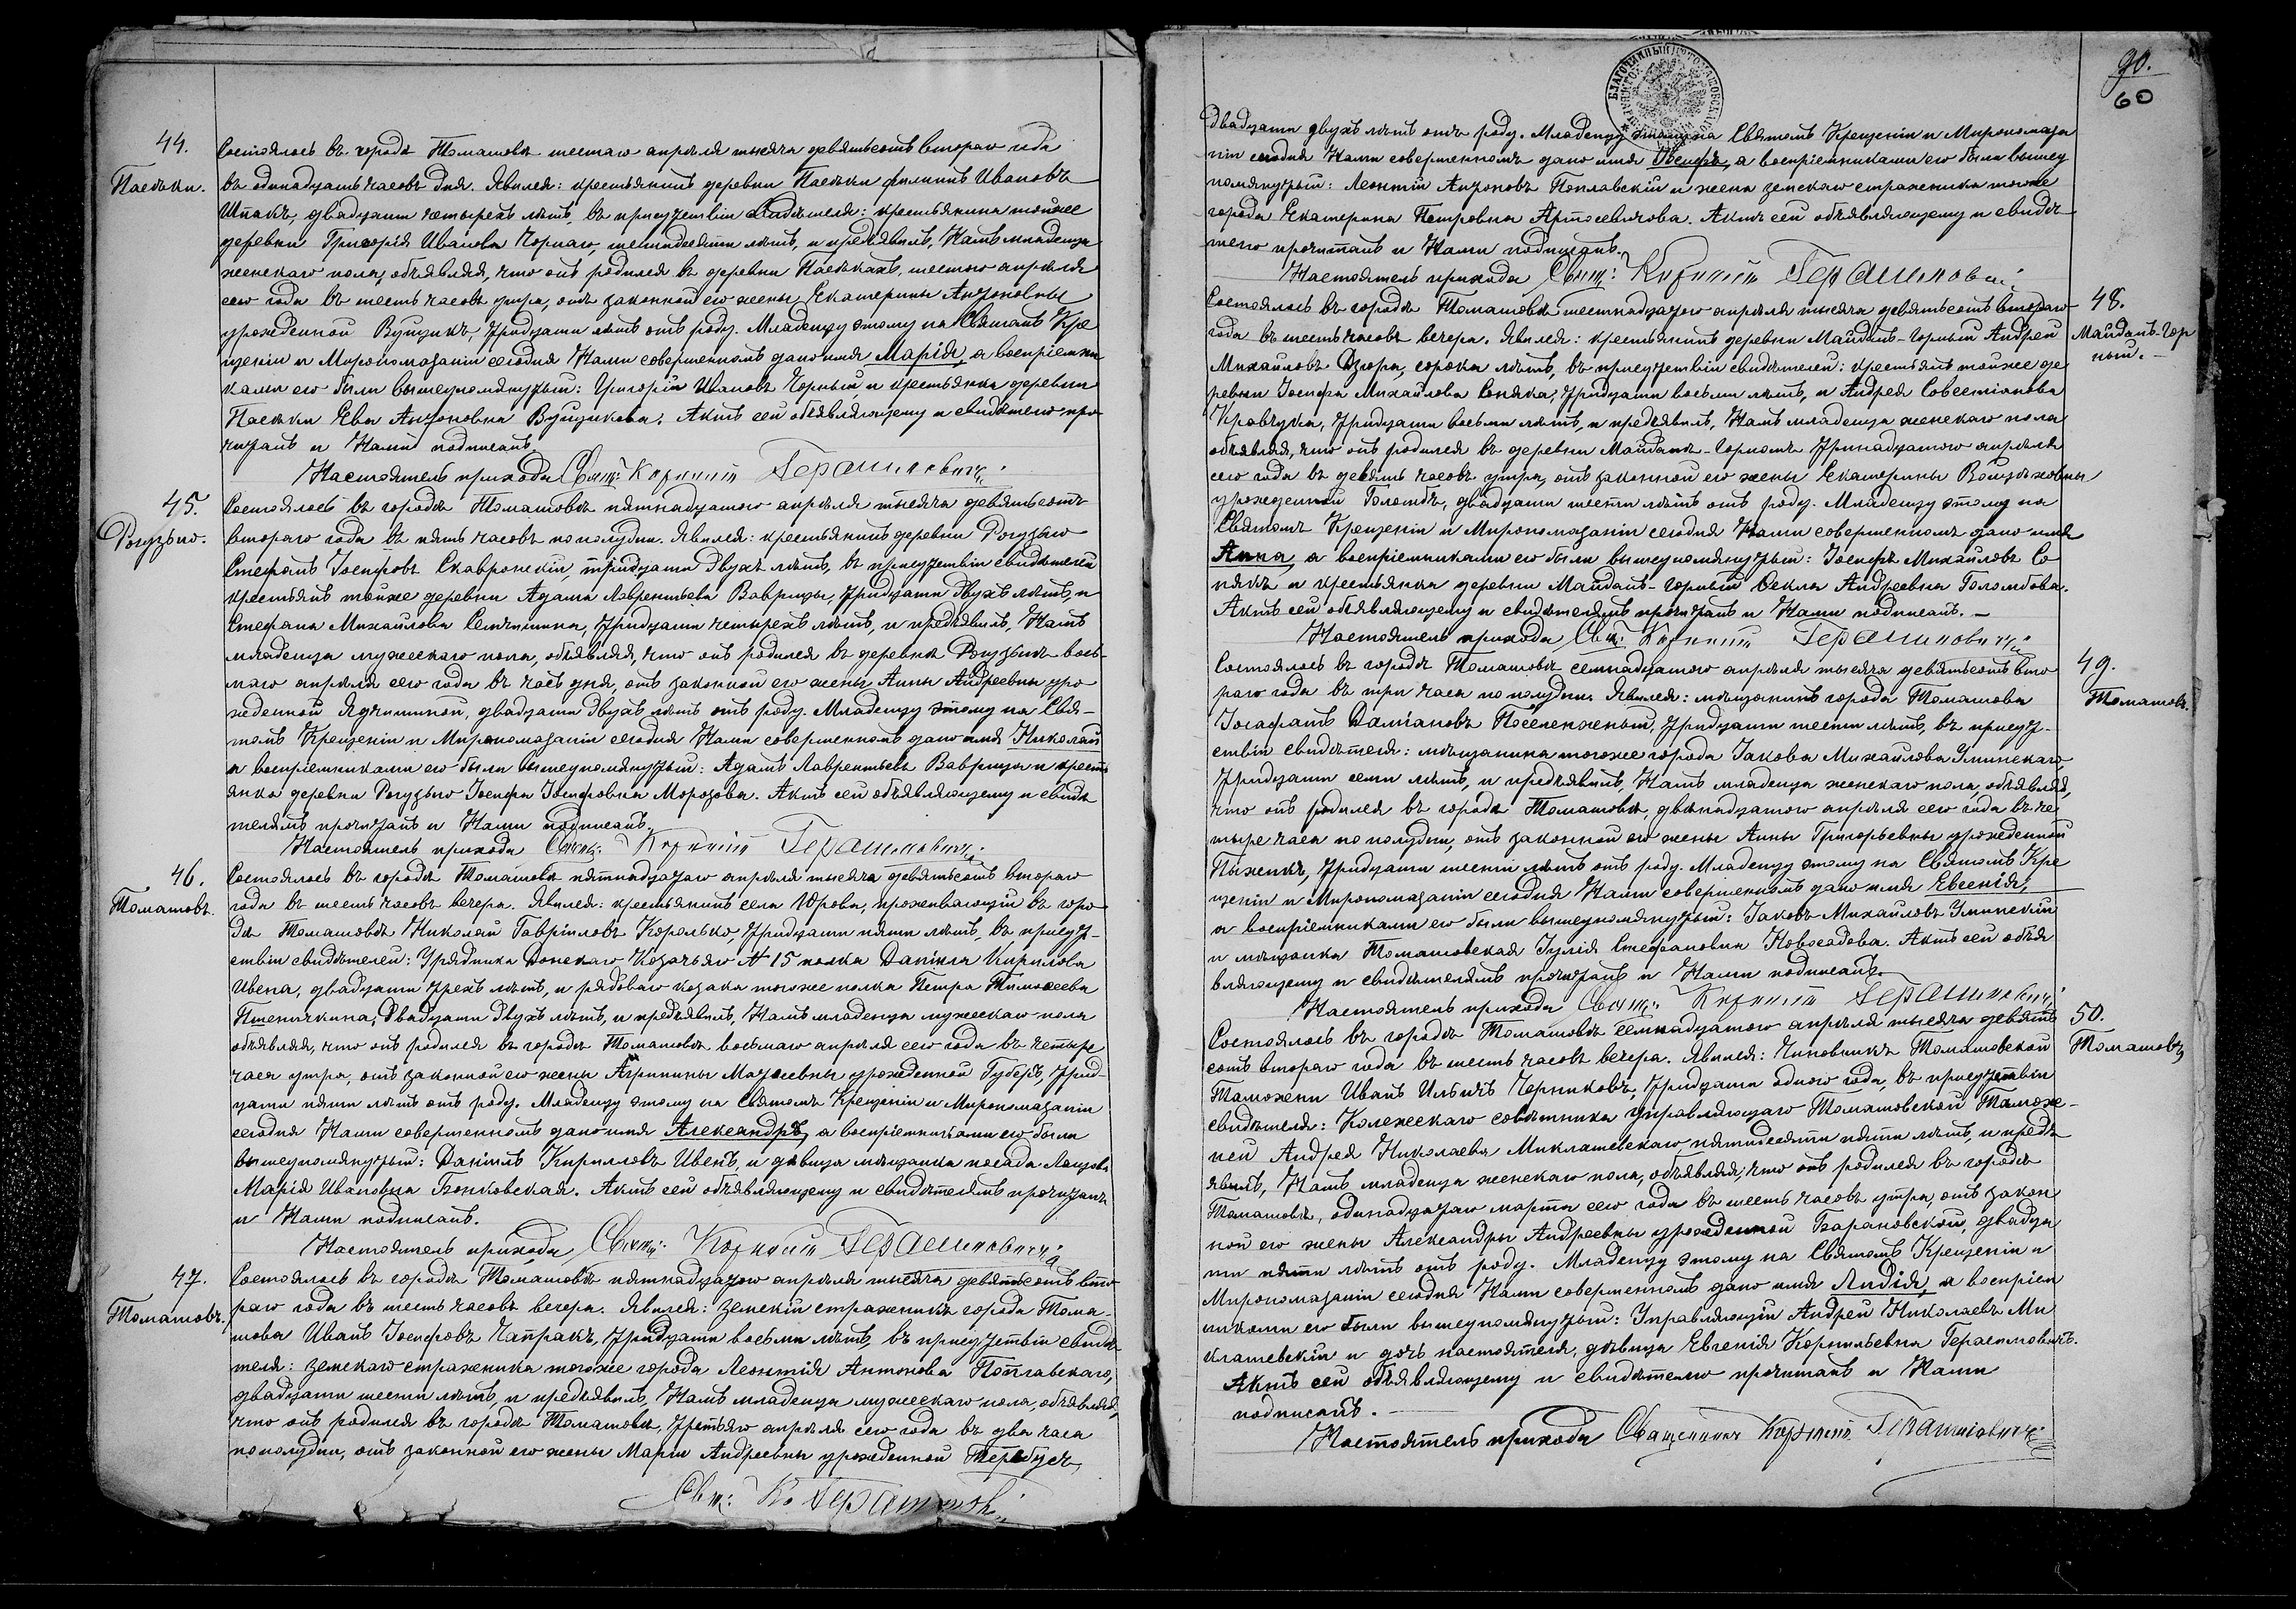 44.
Пасѣки.
Состоялось въ городѣ Томашовѣ шестаго апрѣля тысяча девятьсотъ втораго года
въ одинадцать часовъ дня. Явился: крестьянинъ деревни Пасѣки Филиппъ Ивановъ
Шпакъ, двадцати четырехъ лѣтъ, въ присутствіи свидѣтеля: крестьянина тойже
деревни Григорія Иванова Чорнаго, шестидесяти лѣтъ, и предъявилъ Намъ младенца
женскаго пола, объявляя, что онъ родился въ деревнѣ Пасѣкахъ, шестого апрѣля
сего года въ шесть часовъ утра, отъ законной его жены Екатерины Антоновны
урожденной Вуйцикъ, тридцати лѣтъ отъ роду. Младенцу этому на Святомъ Кре
щеніи и Миропомазаніи сегодня Нами совершенномъ дано имя Марія, а воспріемни
ками его были вышеупомянутый: Григорій Ивановъ Чорный, и крестьянка деревни
Пасѣки Ева Антоновна Вуйцикова. Актъ сей объявляющему и свидѣтелю про
читанъ и Нами подписанъ.
Настоятель прихода Свящ: Корнилій Герасимовичъ
45.
Рогузьно.
Состоялось въ городѣ Томашовѣ пятнадцатого апрѣля тысяча девятьсотъ
втораго года въ пять часовъ пополудни. Явился: крестьянинъ деревни Рогузьно
Стефанъ Іосифовъ Скавронскій, тридцати двухъ лѣтъ, въ присутствіи свидѣтелей
крестьянъ тойже деревни Адама Лаврентьева Ваврицы, тридцати двухъ лѣтъ, и
Стефана Михайлова Семчишина, тридцати четырехъ лѣтъ, и предъявилъ Намъ
младенца мужескаго пола, объявляя, что онъ родился въ деревнѣ Рогузьнѣ вось-
маго апрѣля сего года въ часъ дня, отъ законной его жены Анны Андреевны уро
жденной Ядчишиной, двадцати двухъ лѣтъ отъ роду. Младенцу этому на Свя-
томъ Крещеніи и Миропомазаніи сегодня Нами совершенномъ дано имя Николай
а воспріемниками его были вышеупомянутый: Адамъ Лаврентьевъ Ваврица и кресть
янка деревни Рогузьно Іосифа Іосифовна Морозова. Актъ сей объявляющему и свидѣ
телямъ прочитанъ и Нами подписанъ.
Настоятель прихода Свящ: Корнилій Герасимовичъ
46.
Томашовъ.
Состоялось въ городѣ Томашовѣ пятнадцатаго апрѣля тысяча девятьсотъ втораго
года въ шесть часовъ вечера. Явился: крестьянинъ села Юрова, проживающій въ горо
дѣ Томашовѣ Николай Гавріиловъ Королько, тридцати пяти лѣтъ, въ присут-
ствіи свидѣтелей: Урядника Донскаго Козачьяго № 15 полка Даніила Кирилова
Ивена, двадцати трехъ лѣтъ, и рядоваго козака тогоже полка Петра Тимофеева
Пшеничкина, двадцати двухъ лѣтъ, и предъявилъ Намъ младенца мужескаго пола
объявляя, что онъ родился въ городѣ Томашовѣ восьмаго апрѣля сего года въ четыре
часа утра, отъ законной его жены Агрипины Матвеевны урожденной Губеръ, трид-
цати пяти лѣтъ отъ роду. Младенцу этому на Святомъ Крещеніи и Миропомазаніи
сегодня Нами совершенномъ дано имя Александръ, а воспріемниками его были
вышеупомянутый: Даніилъ Кирилловъ Ивенъ, и дѣвица мѣщанка посада Лащова
Марія Ивановна Бонковская. Актъ сей объявляющему и свидѣтелямъ прочитанъ
и Нами подписанъ.
Настоятель прихода Свящ: Корнилій Герасимовичъ
47.
Томашовъ.
Состоялось въ городѣ Томашовѣ пятнадцатого апрѣля тысяча девятьсотъ вто-
раго года въ шесть часовъ вечера. Явился: земскій стражникъ города Тома-
шова Иванъ Іосифовъ Чапракъ, тридцати восьми лѣтъ, въ присутствіи свидѣ-
теля: земскаго стражника тогоже города Леонтія Антонова Поплавскаго,
двадцати шести лѣтъ, и предъявилъ Намъ младенца мужескаго пола, объявляя,
что онъ родился въ городѣ Томашовѣ, третьяго апрѣля сего года въ два часа
пополудни, отъ законной его жены Маріи Андреевны урожденной Теребусъ,
Свящ: К. Герасимов
90.
60
двадцати двухъ лѣтъ отъ роду. Младенцу этому на Святомъ Крещеніи и Миропомаза
ніи сегодня Нами совершенномъ дано имя Іосифъ, а воспріемниками его были вышеу
помянутый: Леонтій Антоновъ Поплавскій и жена земскаго стражника тогоже
города Екатерина Петровна Артосевичова. Актъ сей объявляющему и свидѣ-
телю прочитанъ и Нами подписанъ.
Настоятель прихода Свящ: Корнилій Герасимович
48.
Майданъ-Гор
ный.
Состоялось въ городѣ Томашовѣ шестнадцатого апрѣля тысяча девятьсотъ втораго
года въ шесть часовъ вечера. Явился: крестьянинъ деревни Майданъ-Горный Андрей
Михайловъ Дзюра, сорока лѣтъ, въ присутствіи свидѣтелей: крестьянъ тойже де
ревни Іосифа Михайлова Соняка, тридцати восьми лѣтъ, и Андрея Совестіанова
Кравчука, тридцати восьми лѣтъ, и предъявилъ, Намъ младенца женскаго пола
объявляя, что онъ родился въ деревнѣ Майданѣ-Горномъ тринадцатого апрѣля
сего года въ девять часовъ утра, отъ законной его жены Екатерины Войцѣховны
урожденной Голомбъ, двадцати шести лѣтъ отъ роду. Младенцу этому на
Святомъ Крещеніи и Миропомазаніи сегодня Нами совершенномъ дано имя
Анна, а воспріемниками его были вышеупомянутый: Іосифъ Михайловъ Со
някъ и крестьянка деревни Майданъ-Горный Ѳекла Андреевна Голомбова.
Актъ сей объявляющему и свидѣтелямъ прочитанъ и Нами подписанъ. –
Настоятель прихода Свящ: Корнилій Герасимовичъ
49.
Томашовъ.
Состоялось въ городѣ Томашовѣ семнадцатого апрѣля тысяча девятьсотъ вто
раго года въ три часа пополудни. Явился: мѣщанинъ города Томашова
Іосафатъ Даміановъ Поселенженый, тридцати шести лѣтъ, въ присут-
ствіи свидѣтеля: мѣщанина тогоже города Іакова Михайлова Уминскаго,
тридцати семи лѣтъ, и предъявилъ, Намъ младенца женскаго пола, объявляя,
что онъ родился въ городѣ Томашовѣ, двѣнадцатого апрѣля сего года въ че
тыре часа пополудни, отъ законной его жены Анны Григорьевны урожденной
Пыженкъ, тридцати шести лѣтъ отъ роду. Младенцу этому на Святомъ Кре
щеніи и Миропомазаніи сегодня Нами совершенномъ дано имя Евгенія,
а воспріемниками его были вышеупомянутый: Іаковъ Михайловъ Уминскій
и мѣщанка Томашовская Іулія Стефановна Новосадова. Актъ сей объя
вляющему и свидѣтелямъ прочитанъ и Нами подписанъ.
Настоятель прихода Свящ: Корнилій Герасимович
50.
Томашовъ
Состоялось въ городѣ Томашовѣ семнадцатого апрѣля тысяча девять
сотъ втораго года въ шесть часовъ вечера. Явился: Чиновникъ Томашовской
Таможни Иванъ Ильичъ Черниковъ, тридцати одного года, въ присутствіи
свидѣтеля: Колежскаго совѣтника управляющаго Томашовской Таможе-
ней Андрея Николаева Миклашевскаго пятидесяти пяти лѣтъ, и предъ
явилъ, Намъ младенца женскаго пола, объявляя, что онъ родился въ городѣ
Томашовѣ, одинадцатаго марта сего года въ шесть часовъ утра, отъ закон
ной его жены Александры Андреевны урожденной Барановской, двадца
ти пяти лѣтъ отъ роду. Младенцу этому на Святомъ Крещеніи и
Миропомазаніи сегодня Нами совершенномъ дано имя Лидія, а воспріем
никами его были вышеупомянутый: Управляющій Андрей Николаевъ Ми
клашевскій и дочь настоятеля, дѣвица Евгенія Корнильевна Герасимовичъ.
Актъ сей объявляющему и свидѣтелю прочитанъ и Нами
подписанъ.
Настоятель прихода Священникъ Корнилій Герасимовичъ